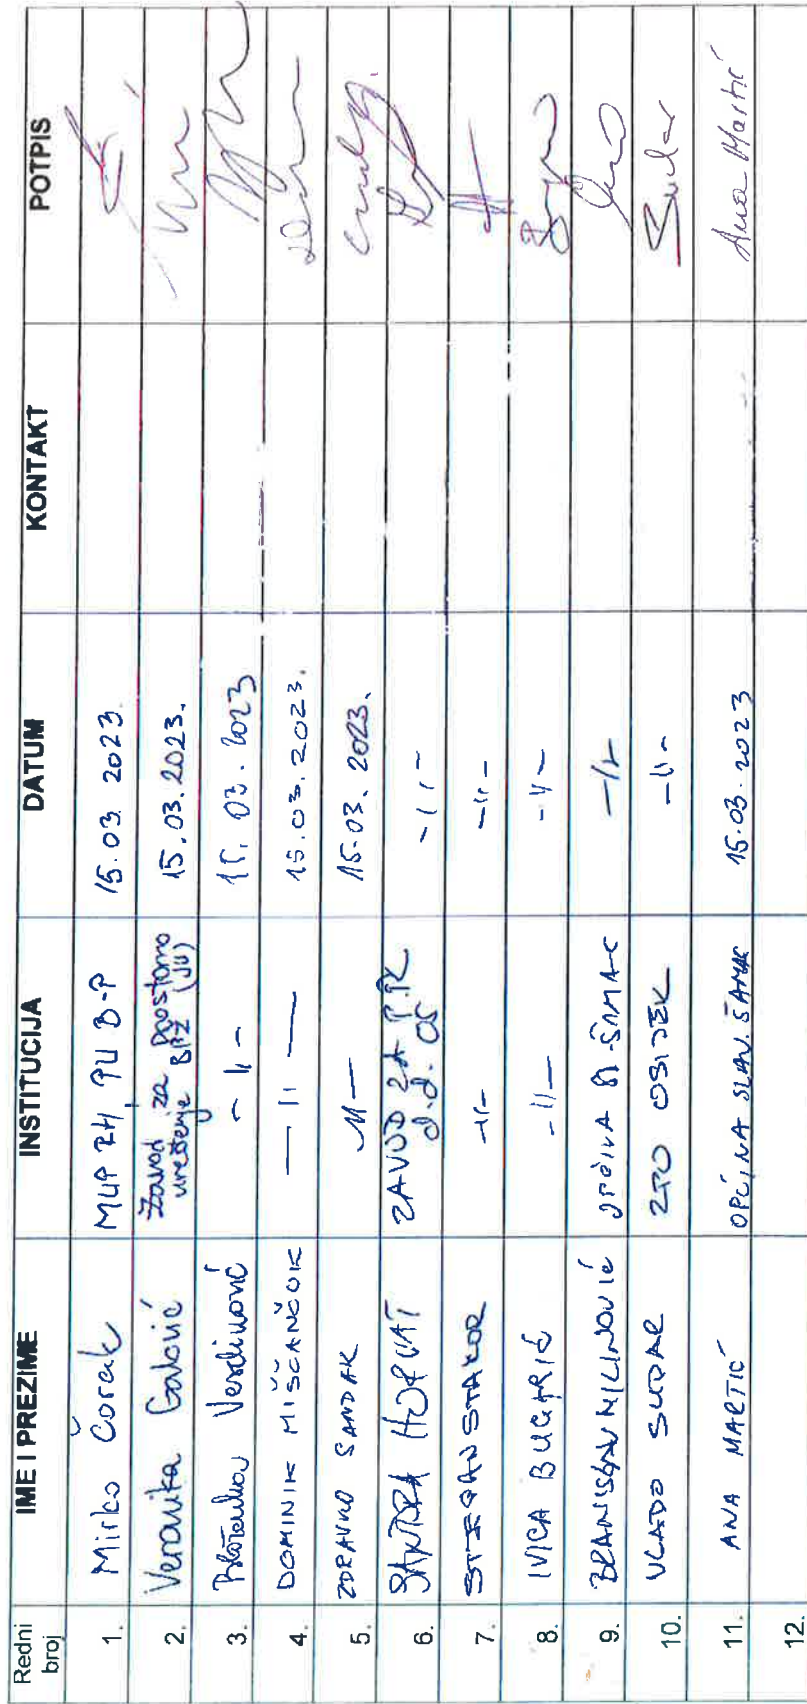 Redni broj IME I PREZIME INSTITUCIJA DATUM KONTAKT POTPIS
1. Mirko Čorak MUP RH, PU B-P 15.03.2023.
2. Veronika Galović Zavod za prostorno uređenje BPŽ (JU) 15.03.2023.
3. -||- 15.03.2023
4. DOMINIK MIŠČANČUK -||- 15.03.2023.
5. ZDRAVKO SANDAK -||- 15.03.2023.
6. SANDRA HORVAT ZAVOD ZA P.R. d.d. OS -||-
7. STJEPAN STAKOR -||- -||-
8. IVICA BUGARIĆ -||- -||-
9. BRANISLAV MILINOVIĆ OPĆINA Sl. ŠAMAC -||-
10. VLADO SUDAR ZTO OSIJEK -||- Sudar
11. ANA MARTIĆ OPĆINA SLAV. ŠAMAC 15.03.2023 Ana Martić
12.